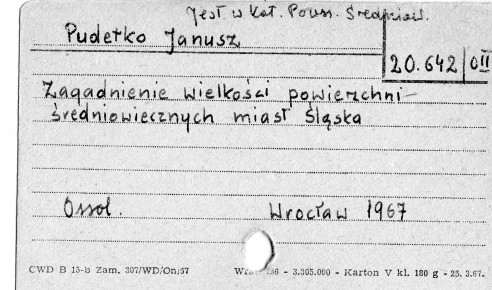 Jest w Kat. Powsz. Średniow.
Pudełko Janusz
20.642 OII
Zagadnienie wielkości powierzchni
średniowiecznych miast Śląska
Ossol. Wrocław 1967
CWD B 15-b Zam. 307/WD/On/57 - 3.305.000 - Karton V kl. 180 g - 25.3.67.